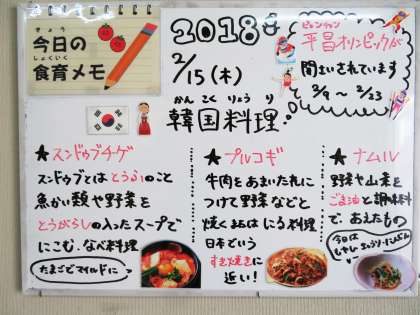 今日の
しょくいく
食育メモ
2018年
2/15(木)
ピョンチャン
平昌オリンピックが
開さいされています
2/9～2/23
かんこくりょうり
韓国料理
★スンドゥブチゲ
スンドゥブとはとうふのこと
魚かい類や野菜を
とうがらしの入ったスープで
にこむ、なべ料理
たまごでマイルドに
★プルコギ
牛肉をあまいたれに
つけて野菜などと
焼くまたはにる料理
日本でいう
すき焼きに
近い!
★ナムル
野菜や山菜を
ごま油と調味料
で、あえたもの
今日は